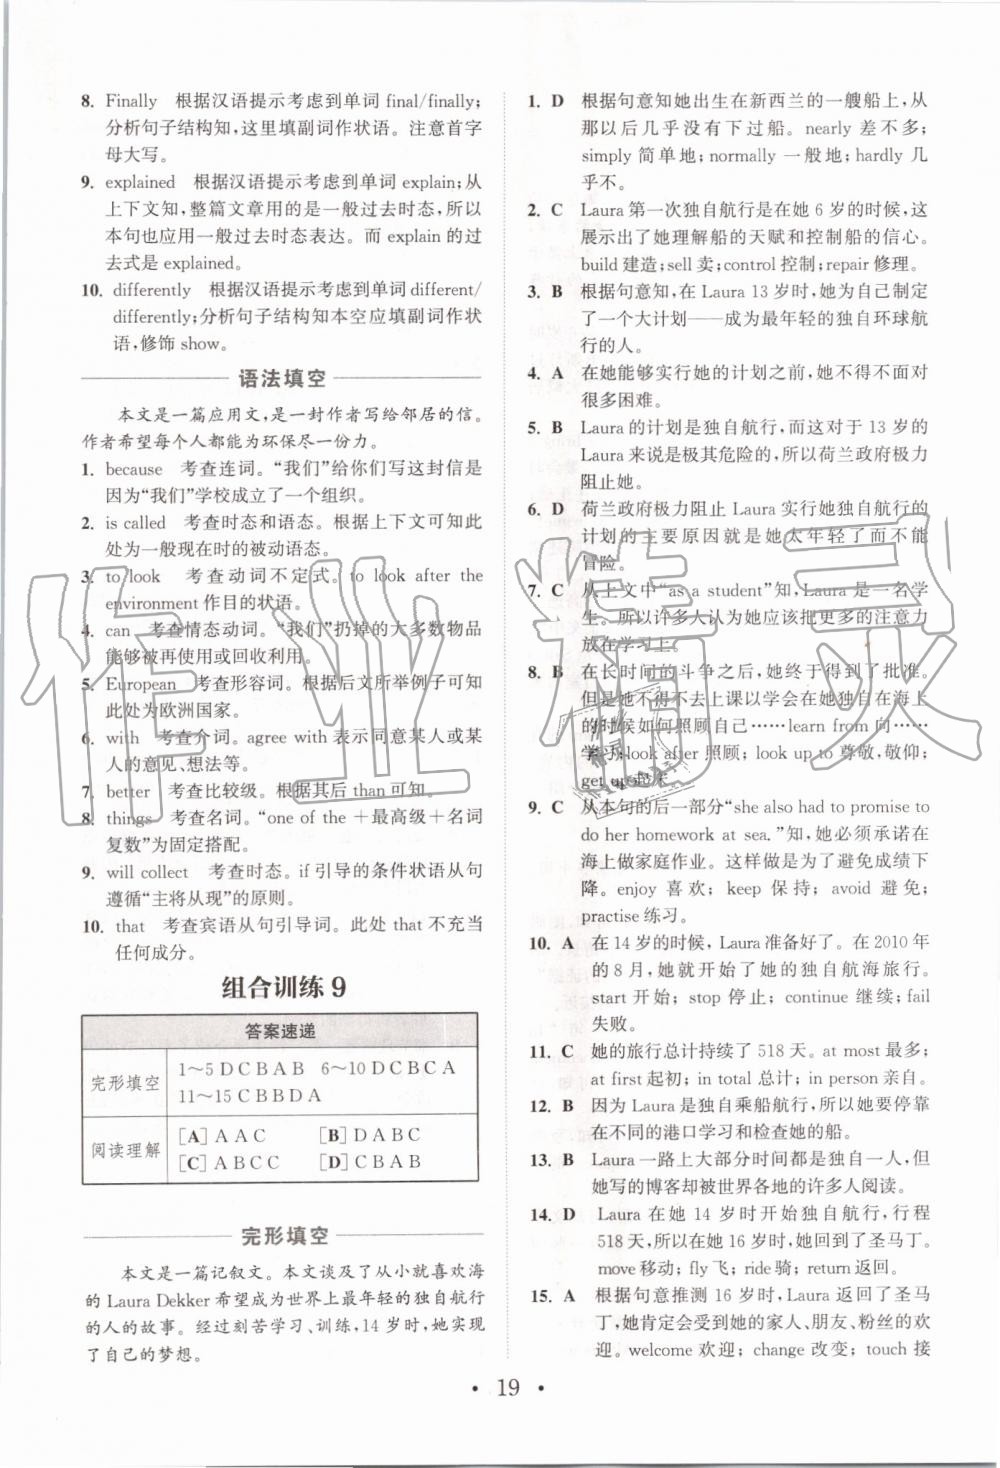 8. Finally 根据汉语提示考虑到单词 final/finally;
分析句子结构知,这里填副词作状语。注意首字
母大写。
9. explained 根据汉语提示考虑到单词 explain;从
上下文知,整篇文章用的是一般过去时态,所以
本句也应用一般过去时态表达。而 explain 的过
去式是 explained。
10. differently 根据汉语提示考虑到单词 different/
differently;分析句子结构知本空应填副词作状
语,修饰 show。
语法填空
本文是一篇应用文,是一封作者写给邻居的信。
作者希望每个人都能为环保尽一份力。
1. because 考查连词。“我们”给你们写这封信是
因为“我们”学校成立了一个组织。
2. is called 考查时态和语态。根据上下文可知此
处为一般现在时的被动语态。
3. to look 考查动词不定式。to look after the
environment 作目的状语。
4. can 考查情态动词。“我们”扔掉的大多数物品
能够被再使用或回收利用。
5. European 考查形容词。根据后文所举例子可知
此处为欧洲国家。
6. with 考查介词。agree with 表示同意某人或某
人的意见、想法等。
7. better 考查比较级。根据其后 than 可知。
8. things 考查名词。“one of the +最高级+名词
复数”为固定搭配。
9. will collect 考查时态。if 引导的条件状语从句
遵循“主将从现”的原则。
10. that 考查宾语从句引导词。此处 that 不充当
任何成分。
组合训练 9
答案速递
完形填空 1~5 D C B A B 6~10 D C B C A
11~15 C B B D A
阅读理解 [A] A A C [B] D A B C
[C] A B C C [D] C B A B
完形填空
本文是一篇记叙文。本文谈及了从小就喜欢海
的 Laura Dekker 希望成为世界上最年轻的独自航行
的人的故事。经过刻苦学习、训练,14 岁时,她实现
了自己的梦想。
1. D 根据句意知她出生在新西兰的一艘船上,从
那以后几乎没有下过船。nearly 差不多;
simply 简单地;normally 一般地;hardly 几
乎不。
2. C Laura 第一次独自航行是在她 6 岁的时候,这
展示出了她理解船的天赋和控制船的信心。
build 建造;sell 卖;control 控制;repair 修理。
3. B 根据句意知,在 Laura 13 岁时,她为自己制定
了一个大计划——成为最年轻的独自环球航
行的人。
4. A 在她能够实行她的计划之前,她不得不面对
很多困难。
5. B Laura 的计划是独自航行,而这对于 13 岁的
Laura 来说是极其危险的,所以荷兰政府极力
阻止她。
6. D 荷兰政府极力阻止 Laura 实行她独自航行的
计划的主要原因就是她太年轻了而不能
冒险。
7. C 从上文中“as a student”知,Laura 是一名学
生。所以许多人认为她应该把更多的注意力
放在学习上。
8. B 在长时间的斗争之后,她终于得到了批准。
但是她不得不去上课以学会在她独自在海上
的时候如何照顾自己……learn from 向……
学习;look after 照顾;look up to 尊敬,敬仰;
get up 起床。
9. C 从本句的后一部分“she also had to promise to
do her homework at sea.”知,她必须承诺在
海上做家庭作业。这样做是为了避免成绩下
降。enjoy 喜欢;keep 保持;avoid 避免;
practise 练习。
10. A 在 14 岁的时候,Laura 准备好了。在 2010 年
的 8 月,她就开始了她的独自航海旅行。
start 开始;stop 停止;continue 继续;fail
失败。
11. C 她的旅行总计持续了 518 天。at most 最多;
at first 起初;in total 总计;in person 亲自。
12. B 因为 Laura 是独自乘船航行,所以她要停靠
在不同的港口学习和检查她的船。
13. B Laura 一路上大部分时间都是独自一人,但
她写的博客却被世界各地的许多人阅读。
14. D Laura 在她 14 岁时开始独自航行,行程
518 天,所以在她 16 岁时,她回到了圣马丁。
move 移动;fly 飞;ride 骑;return 返回。
15. A 根据句意推测 16 岁时,Laura 返回了圣马
丁,她肯定会受到她的家人、朋友、粉丝的欢
迎。welcome 欢迎;change 改变;touch 接
· 19 ·
作业精灵